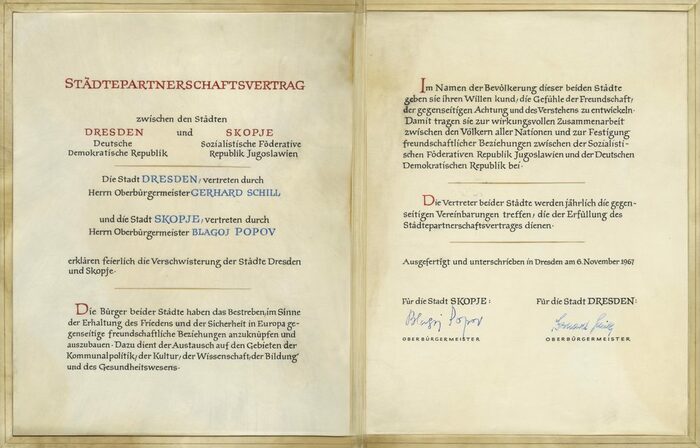 STÄDTEPARTNERSCHAFTSVERTRAG
zwischen den Städten
DRESDEN und SKOPJE
Deutsche Sozialistische Föderative
Demokratische Republik Republik Jugoslawien
Die Stadt DRESDEN, vertreten durch
Herrn Oberbürgermeister GERHARD SCHILL
und die Stadt SKOPJE, vertreten durch
Herrn Oberbürgermeister BLAGOJ POPOV
erklären feierlich die Verschwisterung der Städte Dresden
und Skopje.
Die Bürger beider Städte haben das Bestreben, im Sinne
der Erhaltung des Friedens und der Sicherheit in Europa ge-
genseitige freundschaftliche Beziehungen anzuknüpfen und
auszubauen. Dazu dient der Austausch auf den Gebieten der
Kommunalpolitik, der Kultur, der Wissenschaft, der Bildung
und des Gesundheitswesens.
Im Namen der Bevölkerung dieser beiden Städte
geben sie ihren Willen kund, die Gefühle der Freundschaft,
der gegenseitigen Achtung und des Verstehens zu entwickeln.
Damit tragen sie zur wirkungsvollen Zusammenarbeit
zwischen den Völkern aller Nationen und zur Festigung
freundschaftlicher Beziehungen zwischen der Sozialisti-
schen Föderativen Republik Jugoslawien und der Deutschen
Demokratischen Republik bei.
Die Vertreter beider Städte werden jährlich die gegen-
seitigen Vereinbarungen treffen, die der Erfüllung des
Städtepartnerschaftsvertrages dienen.
Ausgefertigt und unterschrieben in Dresden am 6. November 1967
Für die Stadt SKOPJE: Für die Stadt DRESDEN:
Blagoj Popov Gerhard Schill
OBERBÜRGERMEISTER OBERBÜRGERMEISTER